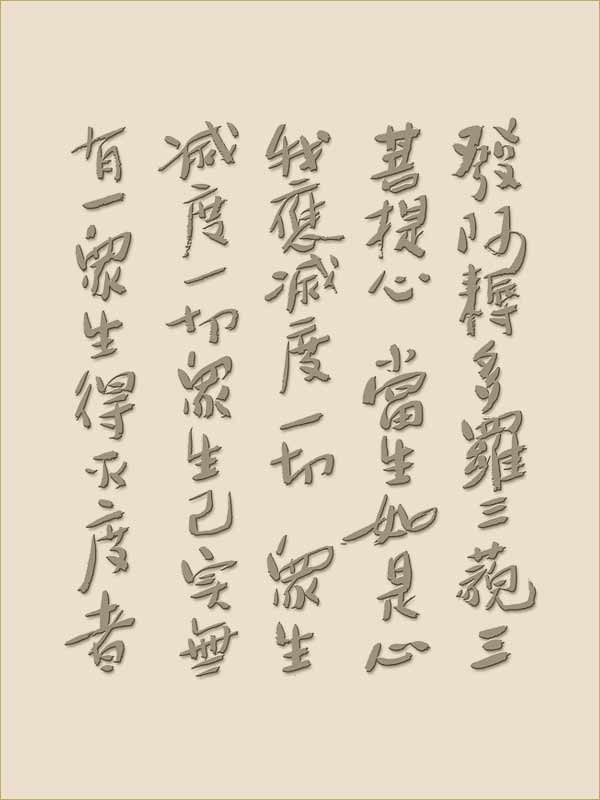 發阿耨多羅三藐三
菩提心 當生如是心
我應滅度一切 眾生
滅度一切眾生已实無
有一眾生得灭度者